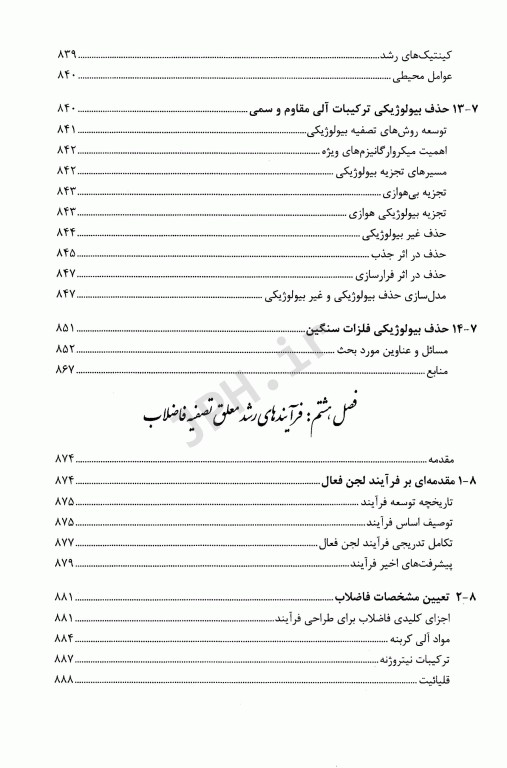 کینتیک‌های رشد ........ ۸۳۹
عوامل محیطی ........ ۸۴۰
۷-۱۳ حذف بیولوژیکی ترکیبات آلی مقاوم و سمی ........ ۸۴۰
توسعه روش‌های تصفیه بیولوژیکی ........ ۸۴۱
اهمیت میکروارگانیزم‌های ویژه ........ ۸۴۲
مسیرهای تجزیه بیولوژیکی ........ ۸۴۲
تجزیه بی‌هوازی ........ ۸۴۳
تجزیه بیولوژیکی هوازی ........ ۸۴۳
حذف غیر بیولوژیکی ........ ۸۴۴
حذف در اثر جذب ........ ۸۴۵
حذف در اثر فرارسازی ........ ۸۴۷
مدل‌سازی حذف بیولوژیکی و غیر بیولوژیکی ........ ۸۴۷
۷-۱۴ حذف بیولوژیکی فلزات سنگین ........ ۸۵۱
مسائل و عناوین مورد بحث ........ ۸۵۲
منابع ........ ۸۶۷
فصل هشتم: فرآیندهای رشد معلق تصفیه فاضلاب
مقدمه ........ ۸۷۴
۸-۱ مقدمه‌ای بر فرآیند لجن فعال ........ ۸۷۴
تاریخچه توسعه فرآیند ........ ۸۷۵
توصیف اساس فرآیند ........ ۸۷۵
تکامل تدریجی فرآیند لجن فعال ........ ۸۷۷
پیشرفت‌های اخیر فرآیند ........ ۸۷۹
۸-۲ تعیین مشخصات فاضلاب ........ ۸۸۱
اجزای کلیدی فاضلاب برای طراحی فرآیند ........ ۸۸۱
مواد آلی کربنه ........ ۸۸۴
ترکیبات نیتروژنه ........ ۸۸۷
قلیائیت ........ ۸۸۸
JPH.ir